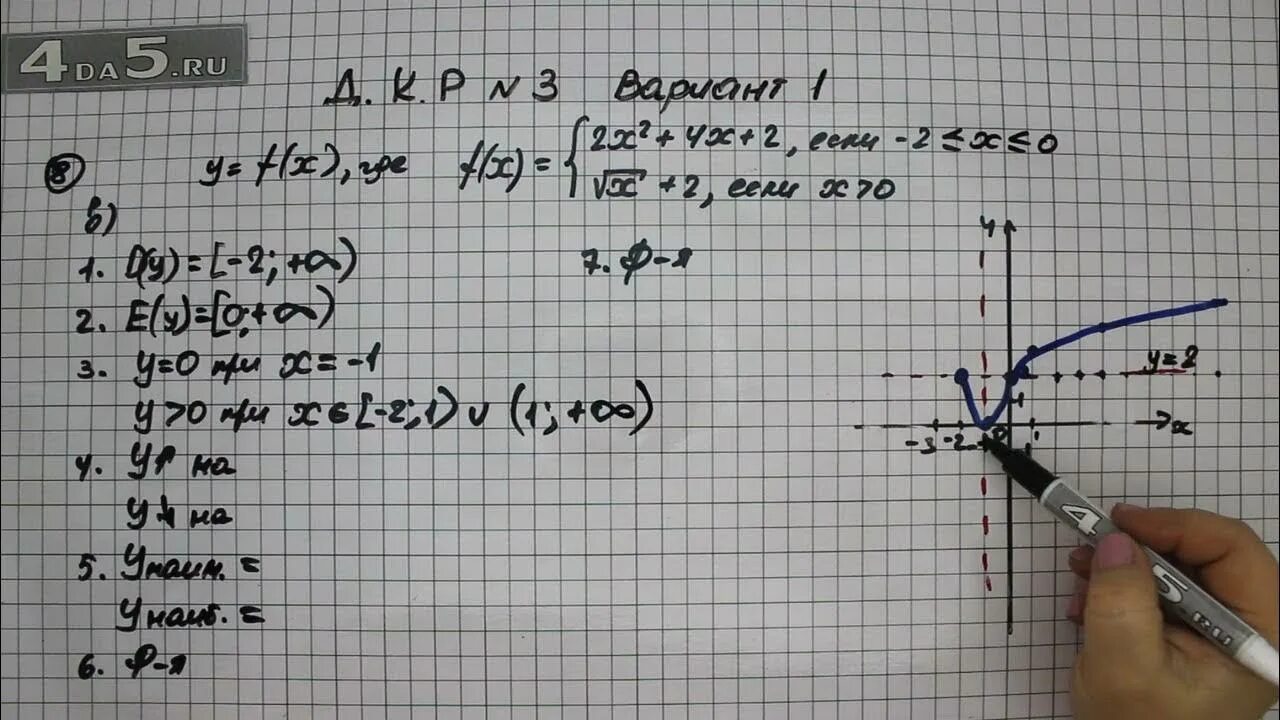 4DA5.RU
Д.К.Р №3 Вариант 1
8 y=f(x), где f(x)= { 2x²+4x+2, если -2≤x≤0
√x+2, если x>0
в)
1. D(y)=[-2;+∞)
7. Ф-я
2. E(y)=[0;+∞)
3. y=0 при x=-1
y>0 при x∈[-2;1)∪(1;+∞)
4. y↑ на
y↓ на
5. yнаим.=
yнаиб.=
6. Ф-я
y
y=2
1
x
-3 -2 -1 0 1
4 5.RU